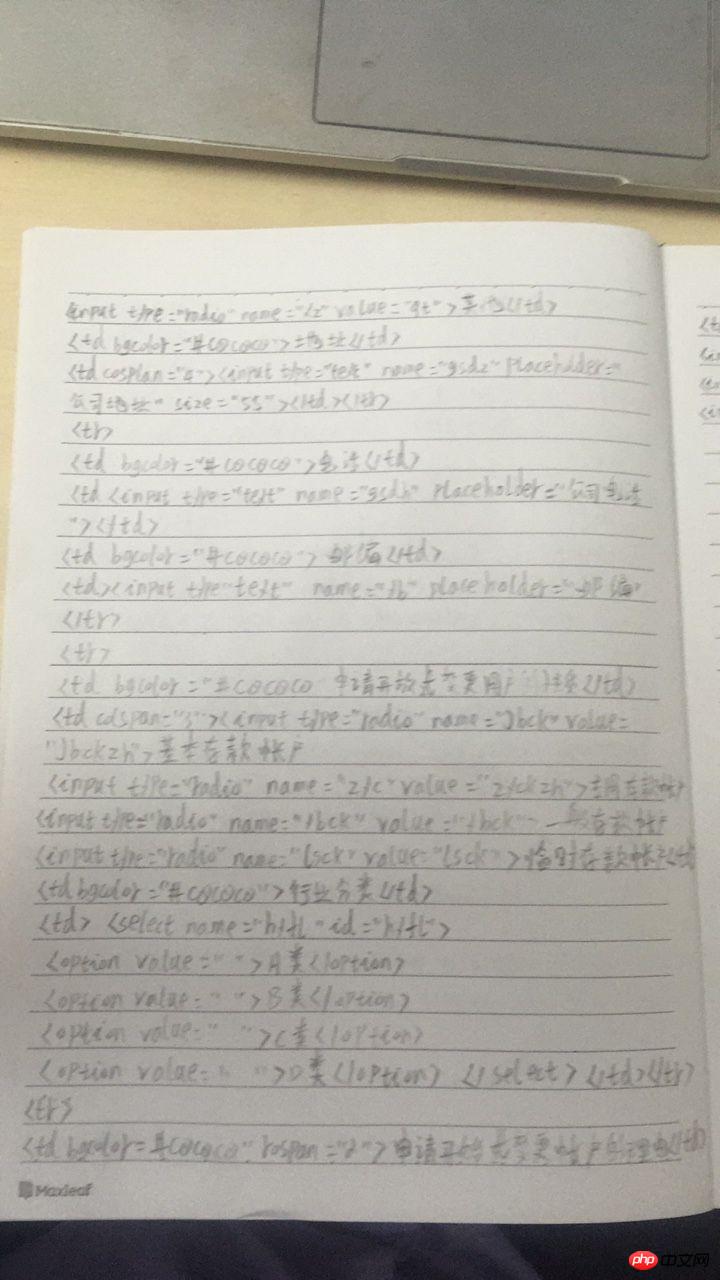 <input type="radio" name="lz" value="qt">其他</td>
<td bgcolor="#c0c0c0">地址</td>
<td cosplan="4"><input type="text" name="gsdz" placeholder="
公司地址" size="55"></td></tr>
<tr>
<td bgcolor="#c0c0c0">电话</td>
<td <input type="text" name="gsdh" placeholder="公司电话
"></td>
<td bgcolor="#c0c0c0">邮编</td>
<td><input type"text" name="yb" placeholder="邮编"
</tr>
<tr>
<td bgcolor="#c0c0c0 申请开放式变更用户</td>
<td colspan="3"><input type="radio" name="Jbck" value=
"Jbckzh">基本存款帐户
<input type="radio" name="zyc" value="zyckzh">专用存款帐户
<input type="radio" name="ybck" value="ybck" 一般存款帐户
<input type="radio" name="lsck" value="lsck">临时存款帐户</td
<td bgcolor="#c0c0c0">行业分类</td>
<td> <select name="hyfl" id="hyfl">
<option value=" ">A类</option>
<option value=" ">B类</option>
<option value=" ">C类</option>
<option value=" ">D类</option> </select> </td></tr>
<tr>
<td bgcolor=#c0c0c0" rospan="2">申请变更帐户的理由</td>
Maxleaf
<t
<i
<t
<i
php 中文网